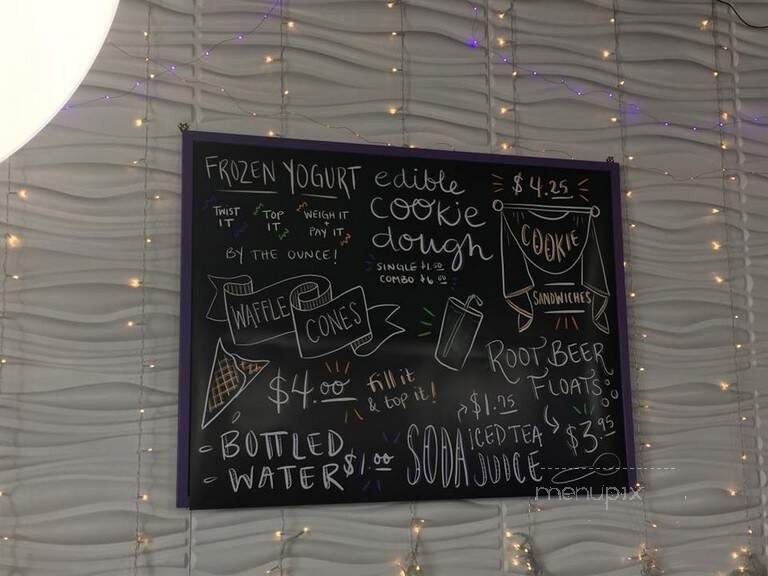 FROZEN YOGURT
TWIST IT
TOP IT
WEIGH IT + PAY IT
BY THE OUNCE!
edible
cookie
dough
SINGLE $1.50
COMBO $6.00
$4.25
COOKIE
SANDWICHES
WAFFLE
CONES
$4.00
fill it
& top it!
ROOT BEER
FLOATS
$3.95
- BOTTLED
- WATER $1.00
$1.75
SODA
ICED TEA
JUICE
menupix